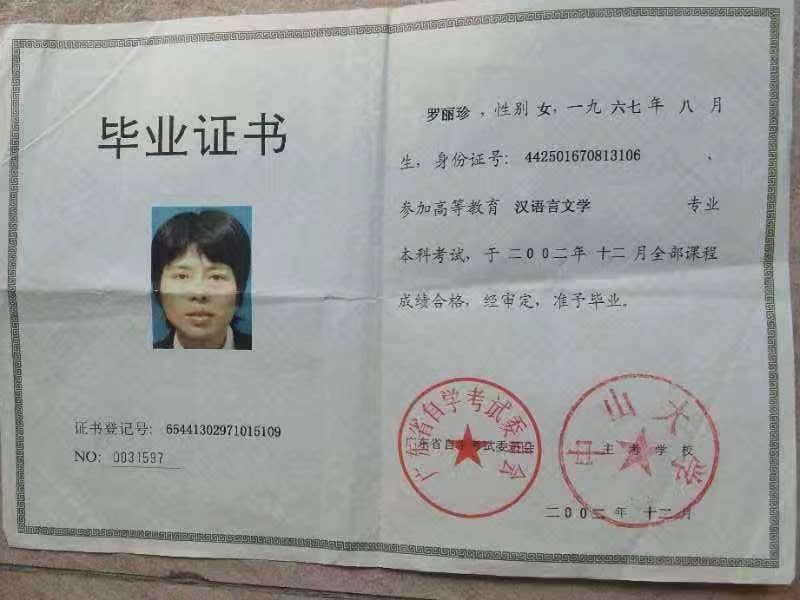 毕业证书
证书登记号: 65441302971015109
NO: 0031597
罗丽珍，性别 女，一九 六七 年 八 月
生，身份证号: 442501670813106 、
参加高等教育 汉语言文学 专业
本科考试，于 二00二年 十二 月全部课程
成绩合格，经审定，准予毕业。
广东省自学考试委员会
广东省自学考试委员会
中山大学
主考学校
二00二年 十二月